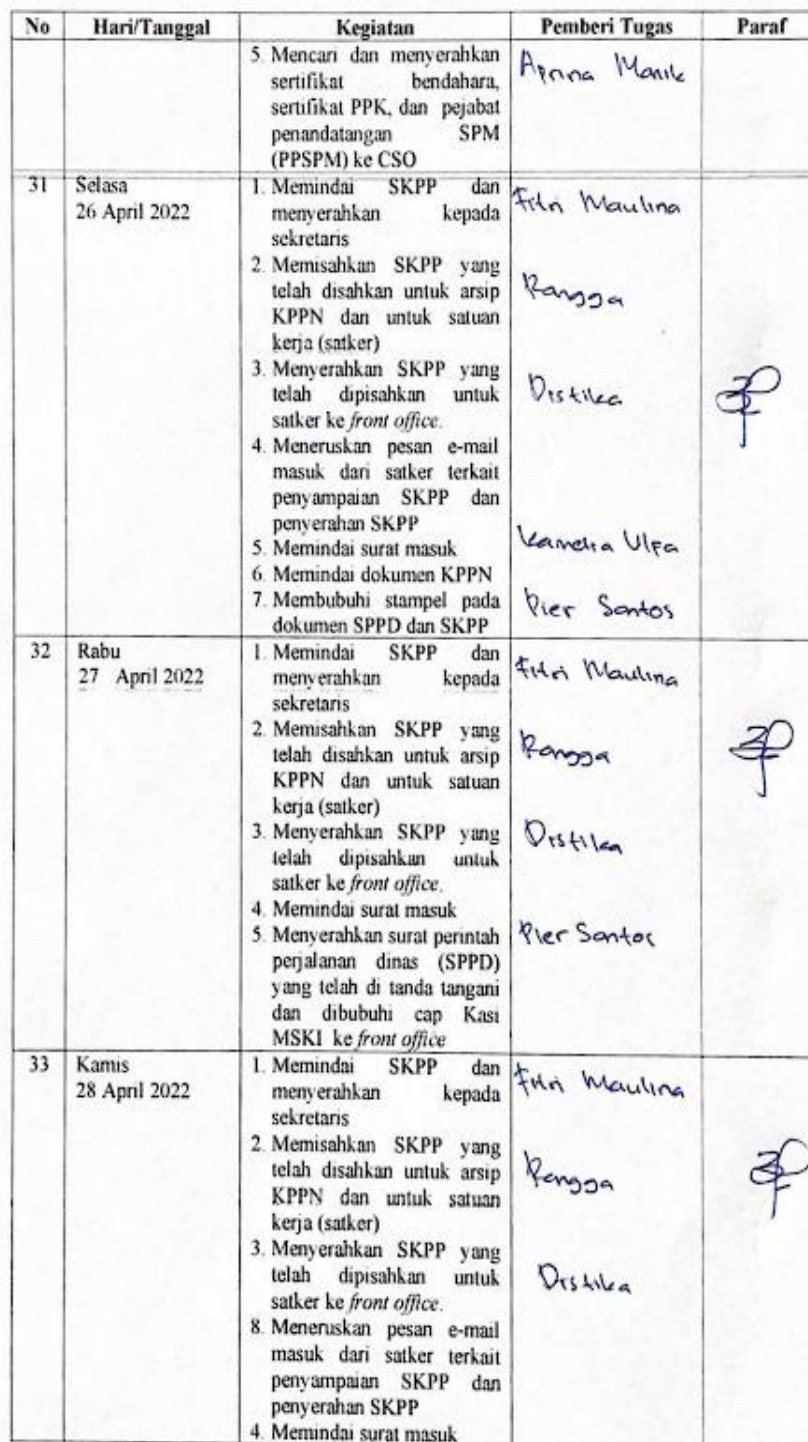 No Hari/Tanggal Kegiatan Pemberi Tugas Paraf
5. Mencari dan menyerahkan
sertifikat bendahara,
sertifikat PPK, dan pejabat
penandatangan SPM
(PPSPM) ke CSO
Aprina Manik
31 Selasa
26 April 2022
1. Memindai SKPP dan
menyerahkan kepada
sekretaris
Fitri Maulina
2. Memisahkan SKPP yang
telah disahkan untuk arsip
KPPN dan untuk satuan
kerja (satker)
Rangga
3. Menyerahkan SKPP yang
telah dipisahkan untuk
satker ke front office.
Distika
4. Meneruskan pesan e-mail
masuk dari satker terkait
penyampaian SKPP dan
penyerahan SKPP
5. Memindai surat masuk
Kamelia Ulfa
6. Memindai dokumen KPPN
7. Membubuhi stampel pada
dokumen SPPD dan SKPP
Pier Santos
32 Rabu
27 April 2022
1. Memindai SKPP dan
menyerahkan kepada
sekretaris
Fitri Maulina
2. Memisahkan SKPP yang
telah disahkan untuk arsip
KPPN dan untuk satuan
kerja (satker)
Rangga
3. Menyerahkan SKPP yang
telah dipisahkan untuk
satker ke front office.
Distika
4. Memindai surat masuk
5. Menyerahkan surat perintah
perjalanan dinas (SPPD)
yang telah di tanda tangani
dan dibubuhi cap Kasi
MSKI ke front office
Pier Santos
33 Kamis
28 April 2022
1. Memindai SKPP dan
menyerahkan kepada
sekretaris
Fitri Maulina
2. Memisahkan SKPP yang
telah disahkan untuk arsip
KPPN dan untuk satuan
kerja (satker)
Rangga
3. Menyerahkan SKPP yang
telah dipisahkan untuk
satker ke front office.
Distika
8. Meneruskan pesan e-mail
masuk dari satker terkait
penyampaian SKPP dan
penyerahan SKPP
4. Memindai surat masuk